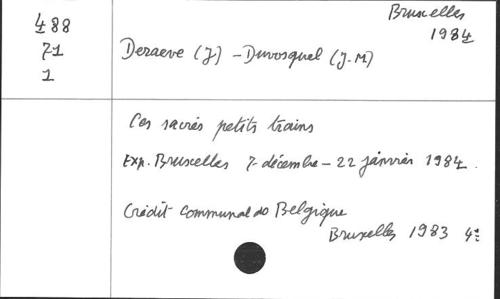 Bruxelles
488
1984
71
Deraeve (J) - Duvosquel (J.M)
1
Ces sacrés petits trains
Exp. Bruxelles 7 décembre - 22 janvier 1984.
Crédit Communal de Belgique
Bruxelles 1983 4°